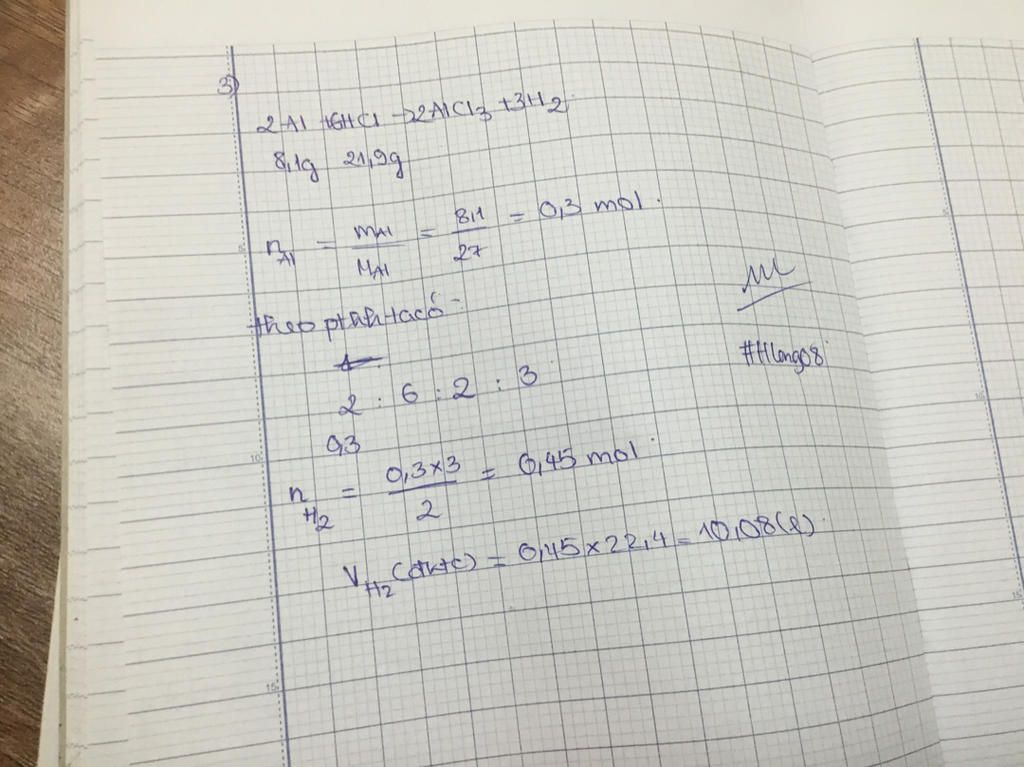 3)
2Al + 6HCl → 2AlCl3 + 3H2
8,1g 21,9g
nAl = mAl / MAl = 8,1 / 27 = 0,3 mol.
theo ptpứ ta có:
2 : 6 : 2 : 3
0,3
nH2 = 0,3 × 3 / 2 = 0,45 mol.
#Hlong08
VH2 (đktc) = 0,45 × 22,4 = 10,08 (l).
5
10
15
5
10
15